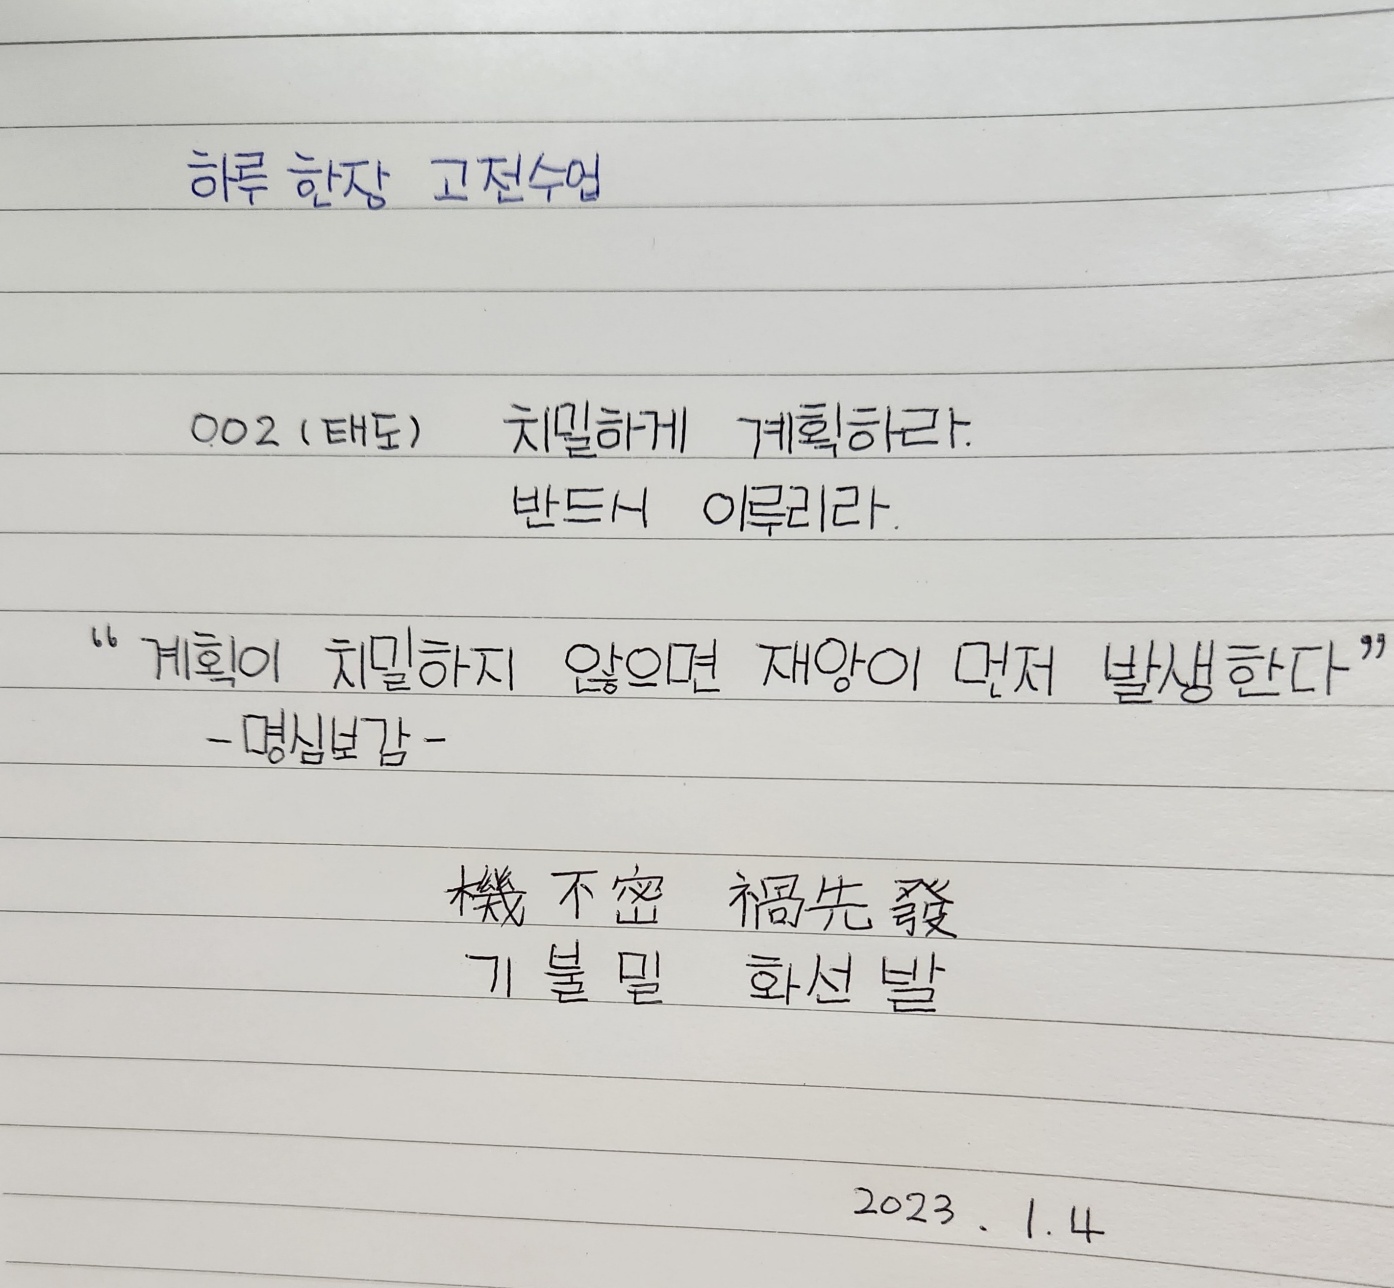 하루 한장 고전수업
002 (태도) 치밀하게 계획하라.
반드시 이루리라.
“계획이 치밀하지 않으면 재앙이 먼저 발생한다”
-명심보감-
機不密 禍先發
기불밀 화선발
2023. 1. 4